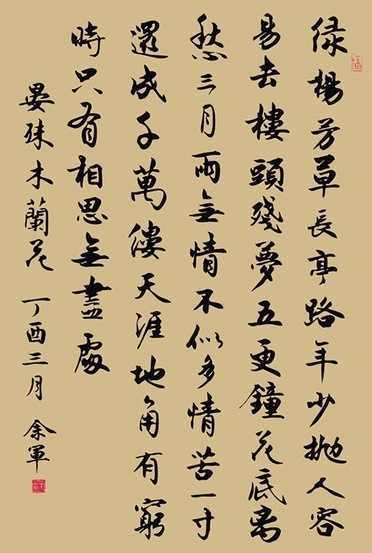 绿楊芳草長亭路年少拋人容
易去樓頭殘夢五更鐘花底离
愁三月雨無情不似多情苦一寸
還成千萬縷天涯地角有窮
時只有相思無盡處
晏殊木蘭花 丁酉三月 余軍